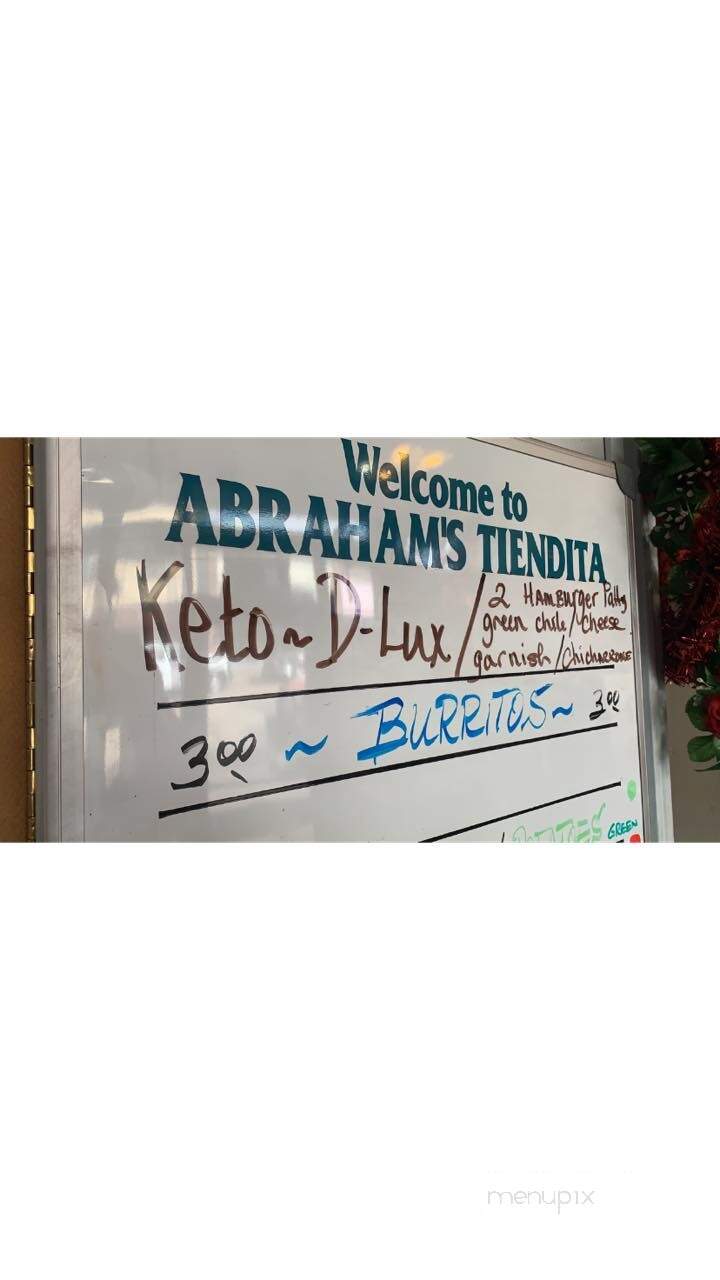 Welcome to
ABRAHAM'S TIENDITA
Keto~D-Lux/
2 HAMBURGER Patty
green chile/cheese
garnish/chicharrone
3.00 ~ BURRITOS ~ 3.00
GREEN
menupix